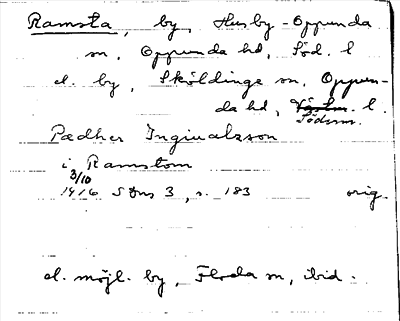 Ramsta, by, Husby-Oppunda
sn, Oppunda hd, Söd. l
el. by, Sköldinge sn, Oppun-
da hd, Västm. l.
Söderm.
Padher Ingiualzson
i Ramstom
3/10
1416 SDns 3, s. 183 orig.
el. möjl. by, Floda sn, ibid.